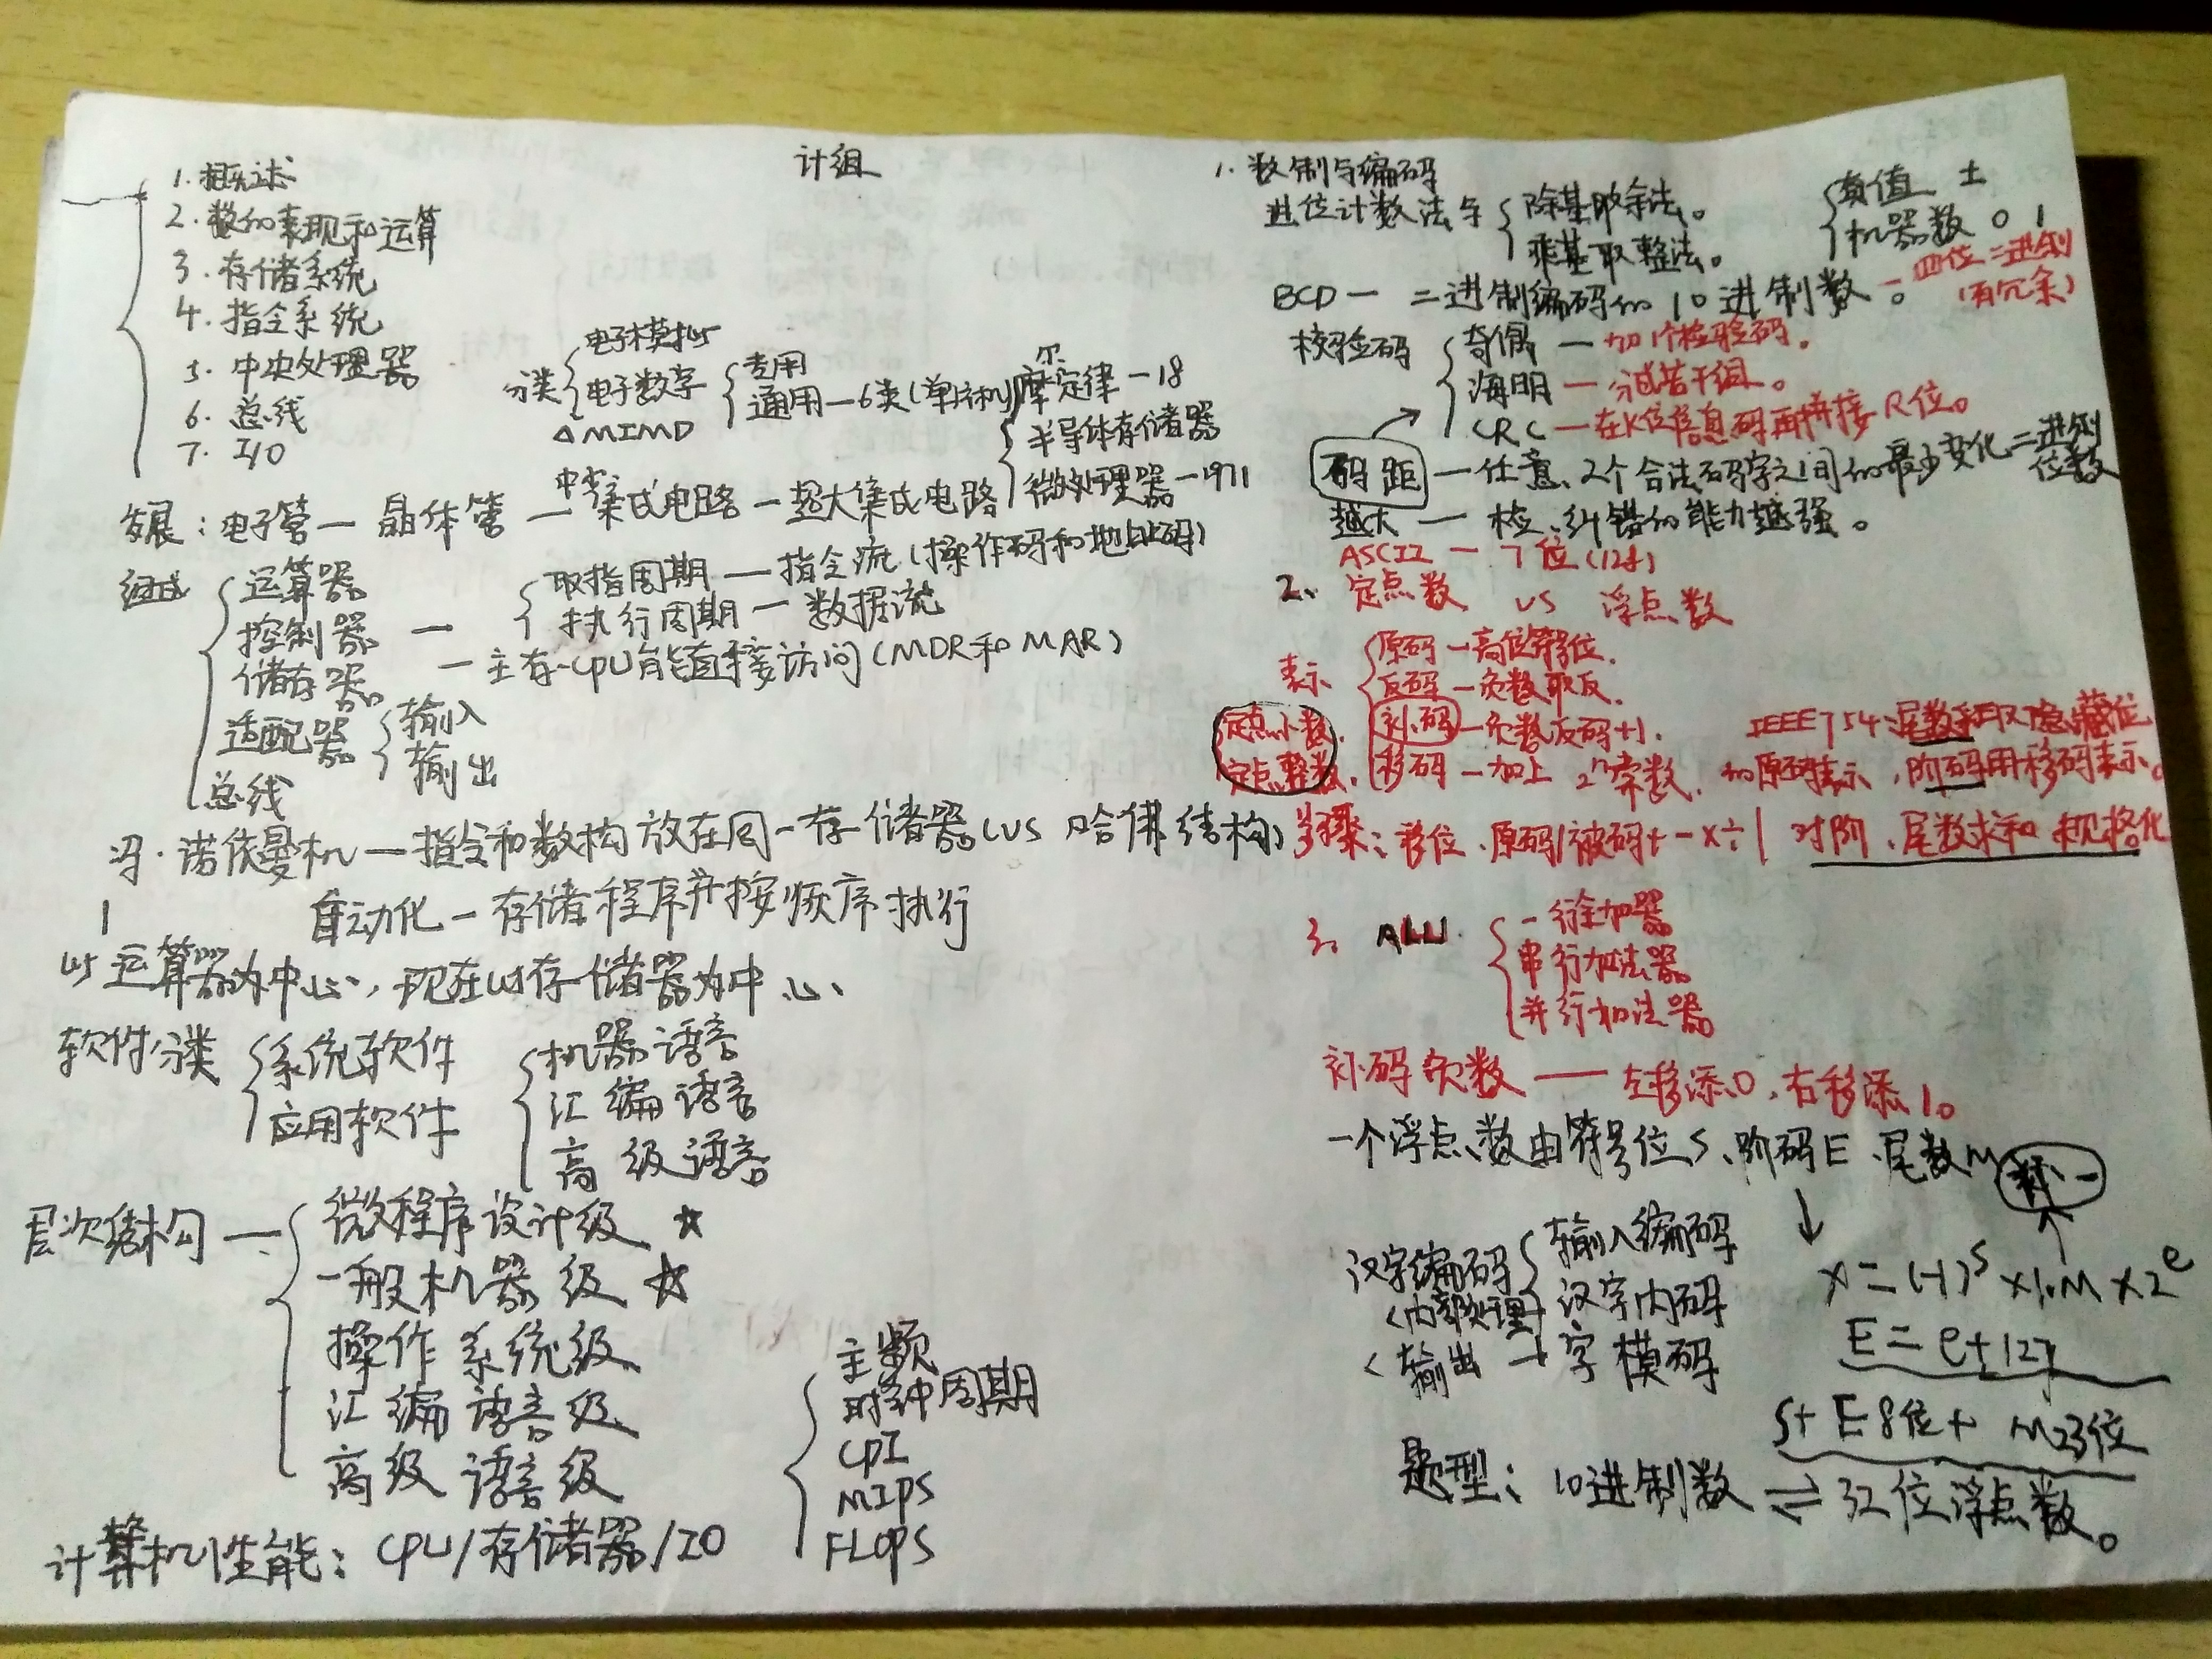 计组
1. 概述
2. 数的表现和运算
3. 存储系统
4. 指令系统
5. 中央处理器
6. 总线
7. I/O
分类
电子模拟
电子数字
△ MIMD
专用
通用—6类(单片机)
摩尔定律—18
半导体存储器
微处理器—1971
发展：电子管—晶体管—中小集成电路—超大集成电路
组成
运算器
控制器 —
取指周期—指令流(操作码和地址码)
执行周期—数据流
储存器 — 主存-CPU能直接访问(MDR和MAR)
适配器
输入
输出
总线
冯·诺依曼机—指令和数构放在同一存储器(vs 哈佛结构)
自动化—存储程序并按顺序执行
以运算器为中心，现在以存储器为中心
软件分类
系统软件
应用软件
机器语言
汇编语言
高级语言
层次结构—
微程序设计级 ☆
一般机器级 ☆
操作系统级
汇编语言级
高级语言级
计算机性能：CPU/存储器/IO
主频
时钟周期
CPI
MIPS
FLOPS
1. 数制与编码
进位计数法与
除基取余法。
乘基取整法。
真值 ±
机器数 0 1
BCD — 二进制编码的10进制数。—四位二进制
(有冗余)
校验码
奇偶—加1个检验码。
海明—分成若干组。
CRC—在K位信息码再拼接R位。
码距—任意2个合法码字之间的最少变化二进制位数
越大—检、纠错的能力越强。
ASCII — 7位(128)
2、定点数 vs 浮点数
表示
原码—高位符号位.
反码—负数取反.
补码—负数反码+1.
移码—加上2ⁿ常数.
定点小数.
定点整数.
IEEE754：尾数采取隐藏位
的原码表示，阶码用移码表示。
步骤：移位、原码/补码+-×÷| 对阶、尾数求和、规格化
3。ALU.
一行全加器
串行加法器
并行加法器
补码负数——左移添0，右移添1。
一个浮点数由符号位S、阶码E、尾数M
x=(-1)ˢ×1.M×2ᵉ
E=e+127
S+E8位+M23位
汉字编码
<内部处理>
<输出
输入编码
汉字内码
字模码
题型：10进制数⇌32位浮点数。